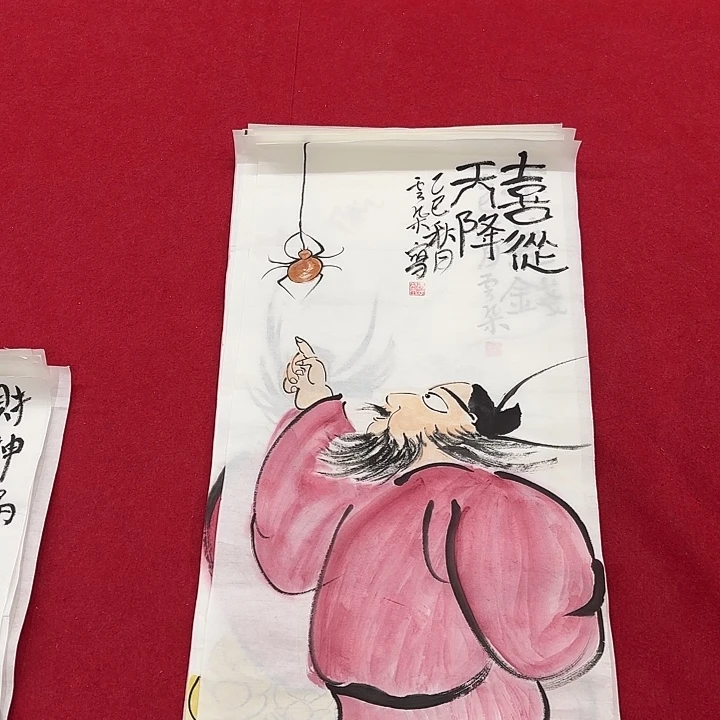 喜從
天降
乙巳秋日
雲朵寫
財神